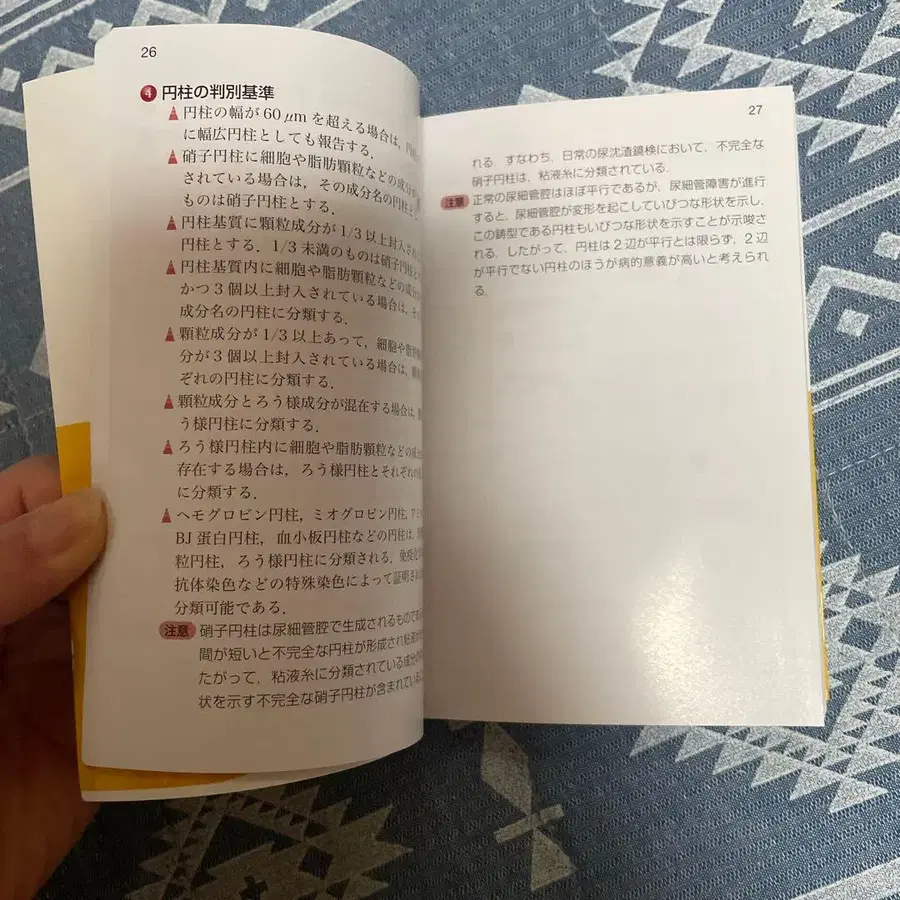 26
4 円柱の判別基準
円柱の幅が 60 μm を超える場合は,
に幅広円柱としても報告する.
硝子円柱に細胞や脂肪顆粒などの成分が
されている場合は, その成分名の円柱とし
ものは硝子円柱とする.
円柱基質に顆粒成分が 1/3 以上封入され
円柱とする. 1/3 未満のものは硝子円柱と
円柱基質内に細胞や脂肪顆粒などの成分が
かつ 3 個以上封入されている場合は, その
成分名の円柱に分類する.
顆粒成分が 1/3 以上あって, 細胞や脂肪
分が 3 個以上封入されている場合は,
ぞれの円柱に分類する.
顆粒成分とろう様成分が混在する場合は,
う様円柱に分類する.
ろう様円柱内に細胞や脂肪顆粒などの成
存在する場合は, ろう様円柱とそれぞれの
に分類する.
ヘモグロビン円柱, ミオグロビン円柱, アミ
BJ 蛋白円柱, 血小板円柱などの円柱は,
粒円柱, ろう様円柱に分類される. 免疫
抗体染色などの特殊染色によって証明され
分類可能である.
注意 硝子円柱は尿細管腔で生成されるものであ
間が短いと不完全な円柱が形成され粘液
たがって, 粘液糸に分類されている成分
状を示す不完全な硝子円柱が含まれている
27
れる. すなわち, 日常の尿沈渣鏡検において, 不完全な
硝子円柱は, 粘液糸に分類されている.
注意 正常の尿細管腔はほぼ平行であるが, 尿細管障害が進行
すると, 尿細管腔が変形を起こしていびつな形状を示し,
この鋳型である円柱もいびつな形状を示すことが示唆さ
れる. したがって, 円柱は 2 辺が平行とは限らず, 2 辺
が平行でない円柱のほうが病的意義が高いと考えられ
る.